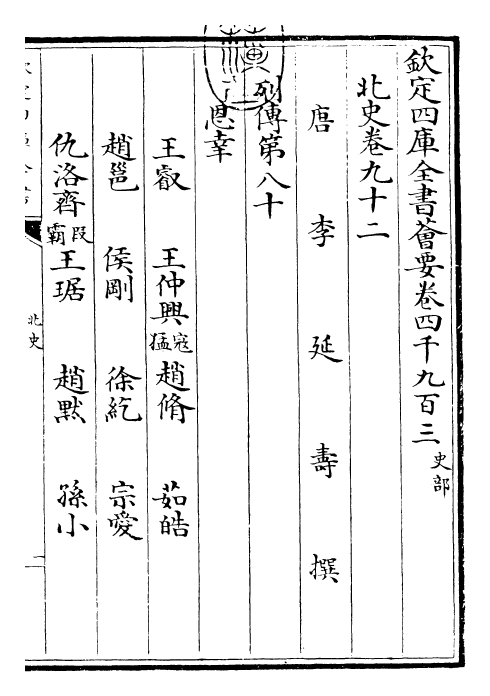 欽定四庫全書薈要卷四千九百三 史部
北史卷九十二
唐 李 延 壽 撰
列傳第八十
恩幸
王叡 王仲興 寇猛 趙脩 茹皓
趙邕 侯剛 徐紇 宗愛
仇洛齊 段霸 王琚 趙黙 孫小
北史